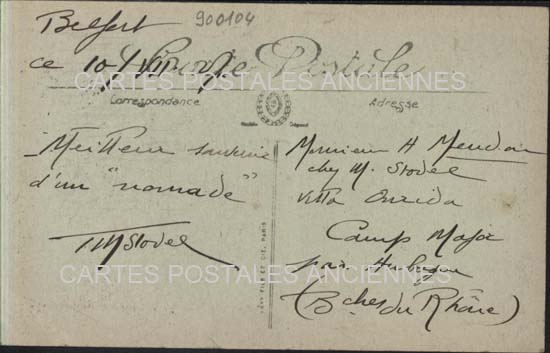 Belfort
900104
ce 10
Carte Postale
CARTES POSTALES ANCIENNES
Correspondance
Adresse
Meilleur souvenir
d'un "nomade"
TMStodel
Monsieur H
chez M. Stodel
Villa
Camp Major
par Aubagne
(Bches du Rhône)
LÉVY FILS ET CIE, PARIS
CARTES POSTALES ANCIENNES